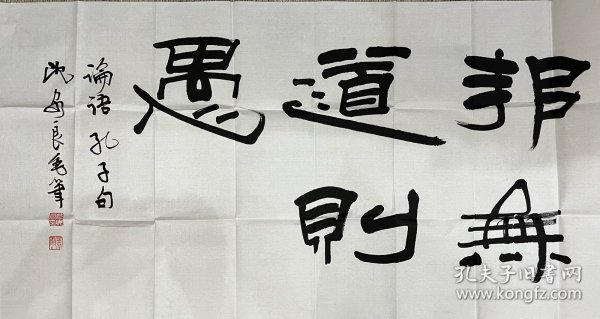 邦無
道則
愚
论语孔子句
良毛笔
孔夫子旧书网
www.kongfz.com